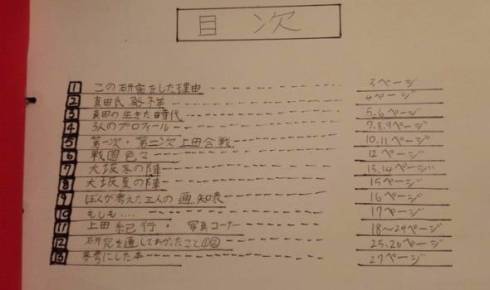 目次
1 この研究をした理由 3ページ
2 真田氏 4ページ
3 真田の生きた時代 5.6ページ
4 3人のプロフィール 7.8.9ページ
5 第一次・第二次上田合戦 10.11ページ
6 戦国色々 12ページ
7 大坂冬の陣 13.14ページ
8 大坂夏の陣 15ページ
9 ぼくが考えた三人の 知恵 16ページ
10 もしも.... 17ページ
11 上田紀行・写真コーナー 18〜24ページ
12 研究を通してわかったこと①② 25.26ページ
13 参考にした本 27ページ